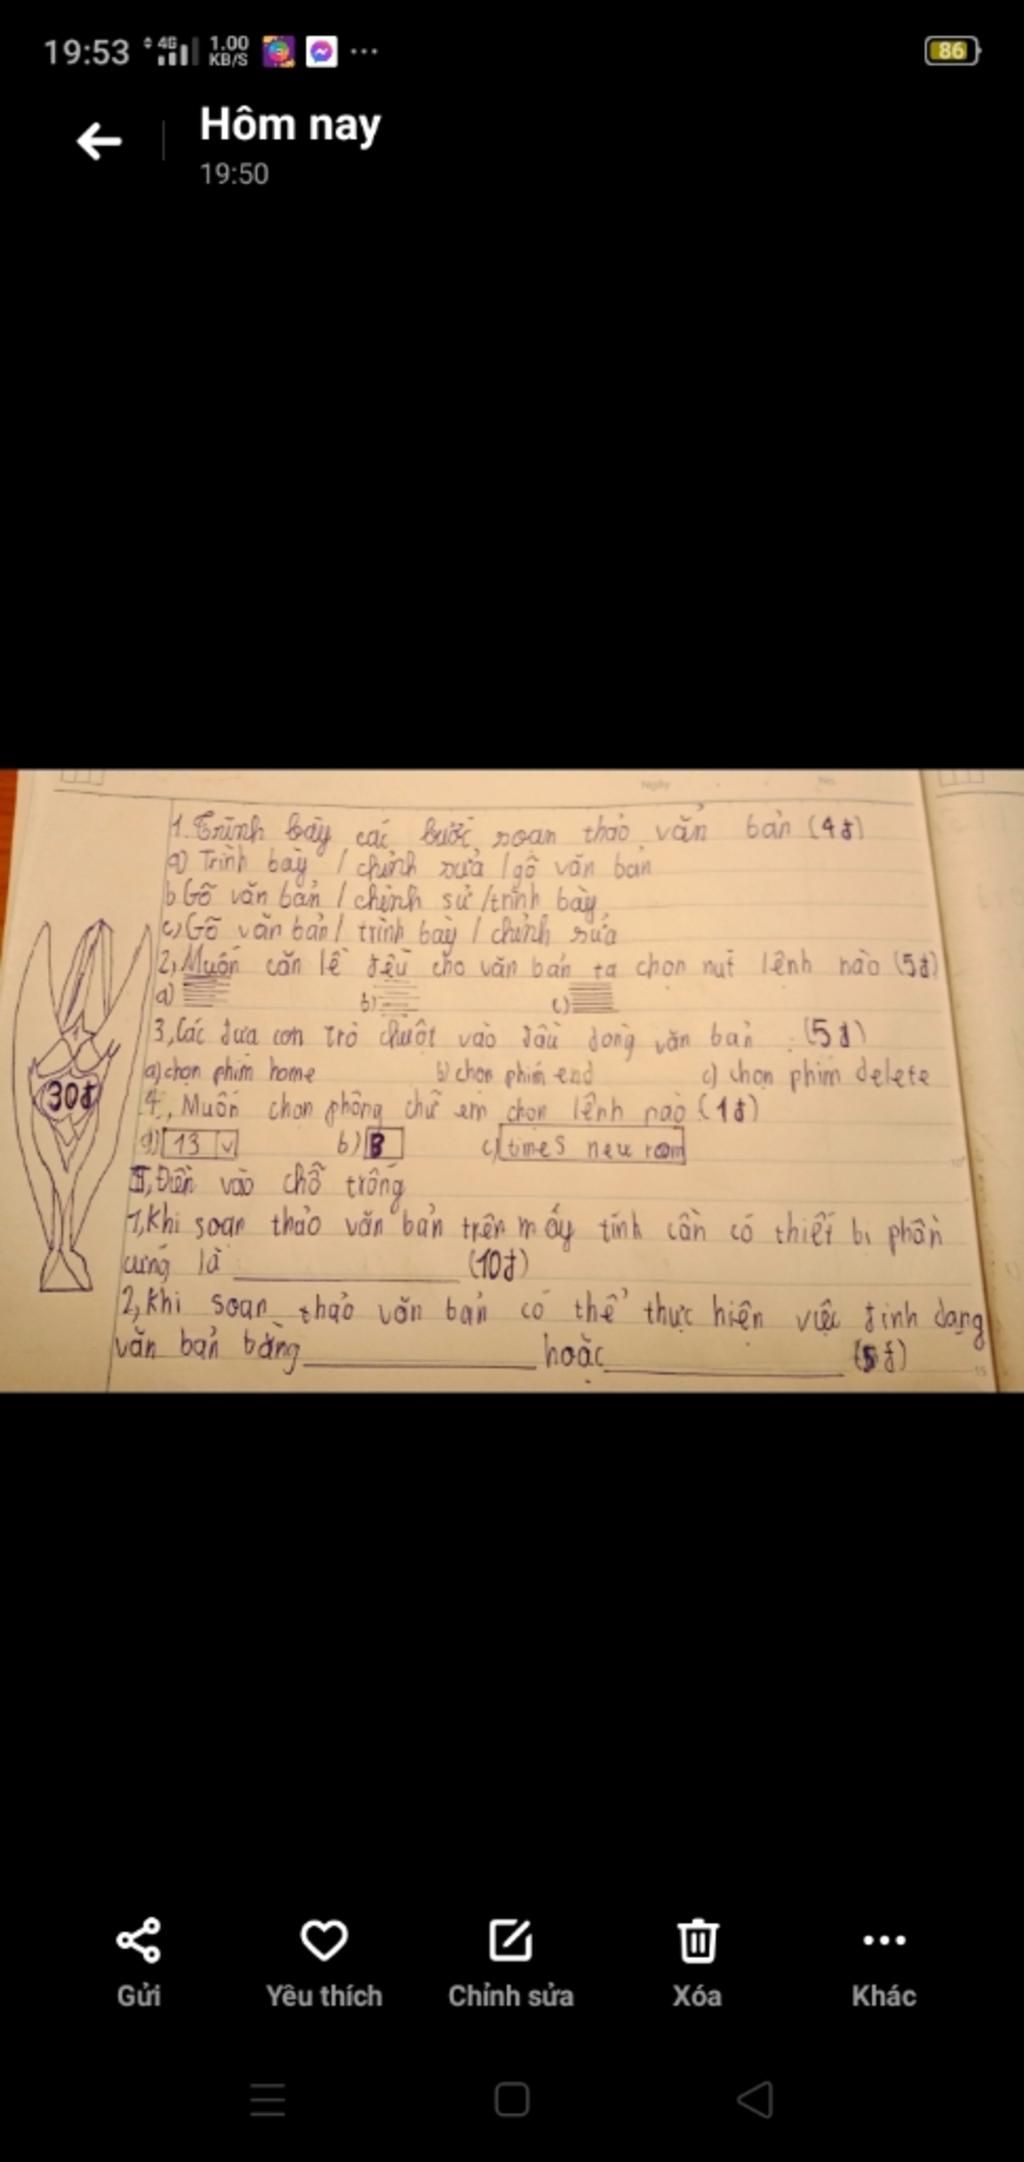 19:53 4G 1.00 KB/S 86
Hôm nay
19:50
1. Trình bày các bước soạn thảo văn bản (4đ)
a) Trình bày / chỉnh sửa / gõ văn bản
b Gõ văn bản / chỉnh sử / trình bày
c) Gõ văn bản / trình bày / chỉnh sửa
2, Muốn căn lề đều cho văn bản ta chọn nút lệnh nào (5đ)
a) b) c)
3, Các đưa con trỏ chuột vào đầu dòng văn bản : (5đ)
a) chọn phím home b) chọn phím end c) chọn phím delete
30đ
4, Muốn chọn phông chữ em chọn lệnh nào (1đ)
a) 13 v b) B c) times new room
II, Điền vào chỗ trống
1, Khi soạn thảo văn bản trên máy tính cần có thiết bị phần
cứng là (10đ)
2, Khi soạn thảo văn bản có thể thực hiện việc định dạng
văn bản bằng hoặc (5đ)
Gửi Yêu thích Chỉnh sửa Xóa Khác